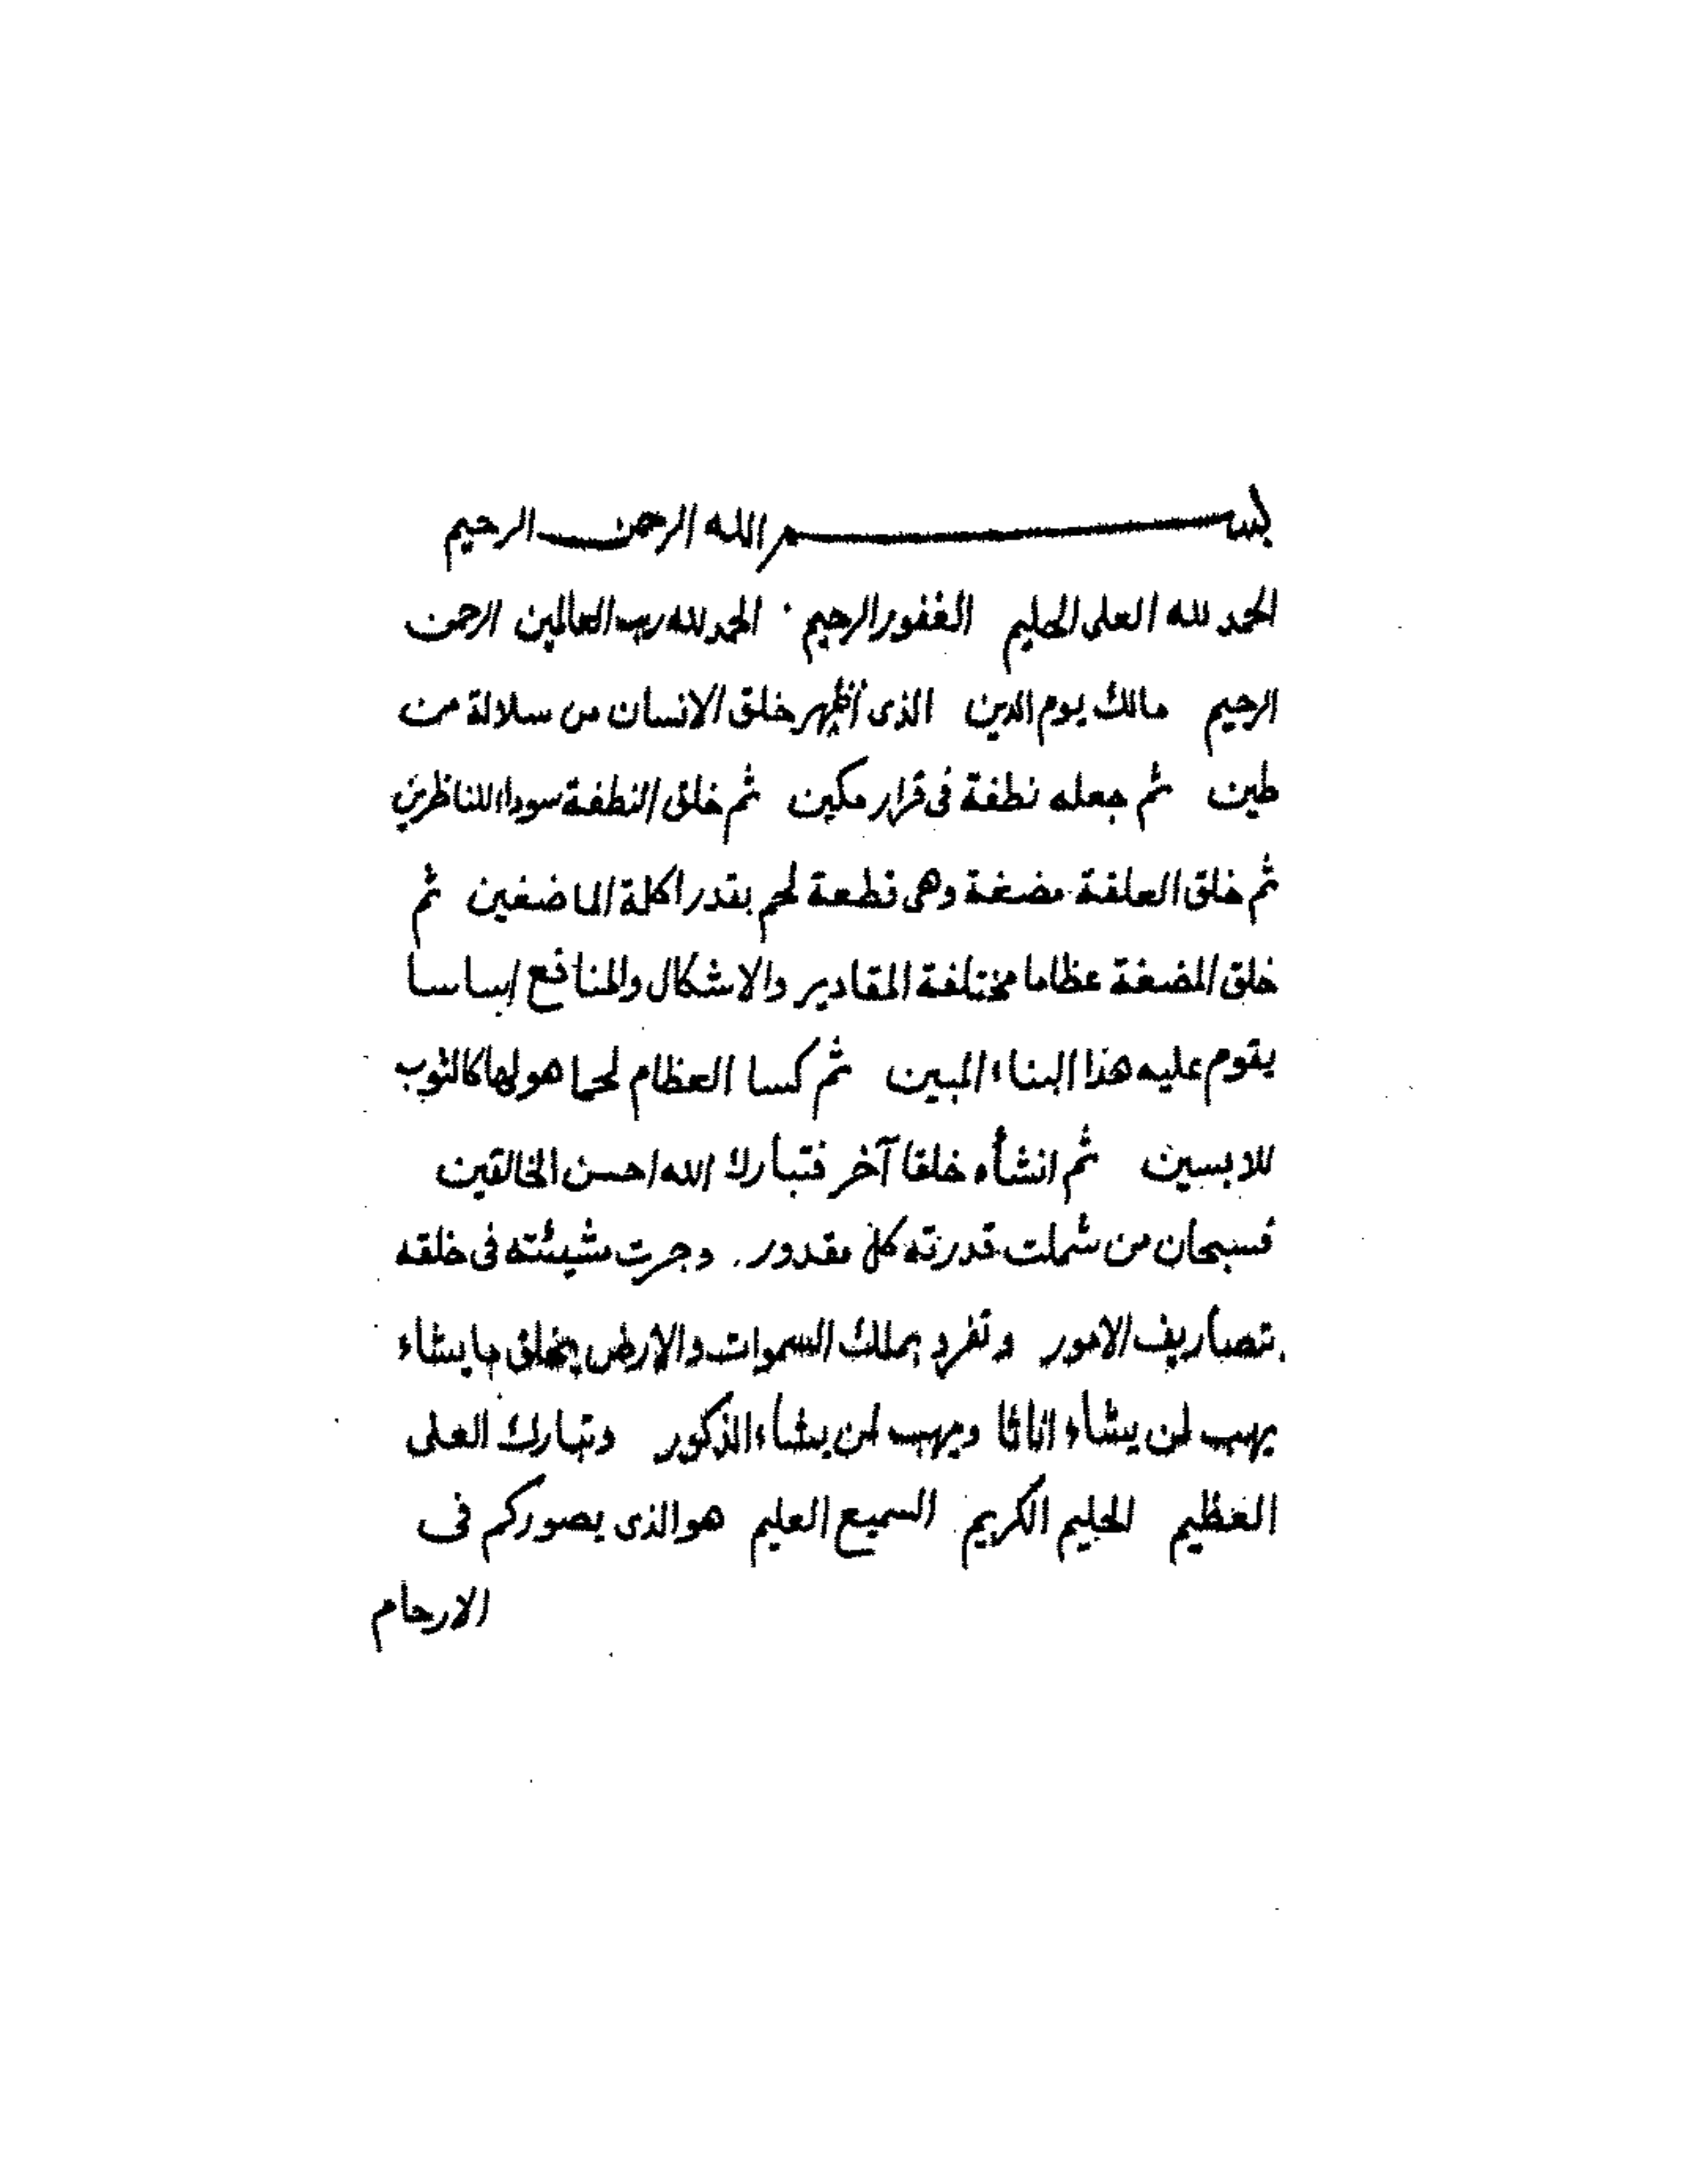 بسم الله الرحمن الرحيم
الحمد لله العلى الحليم الغفور الرحيم الحمد لله رب العالمين الرحمن
الرحيم مالك يوم الدين الذى أظهر خلق الانسان من سلالة من
طين ثم جعله نطفة فى قرار مكين ثم خلق النطفة سوداء للناظرين
ثم خلق العلقة مضغة وهى قطعة لحم بقدر اكلة الماضغين ثم
خلق المضغة عظاما مختلفة المقادير والاشكال والمنافع اساسا
يقوم عليه هذا البناء المبين ثم كسا العظام لحما هو لها كالثوب
للابسين ثم انشأه خلقا آخر فتبارك الله احسن الخالقين
فسبحان من شملت قدرته كل مقدور. وجرت مشيئته فى خلقه
بتصاريف الامور وتفرد بملك السموات والارض يخلق ما يشاء
يهب لمن يشاء اناثا ويهب لمن يشاء الذكور وتبارك العلى
العظيم الحليم الكريم السميع العليم هو الذى يصوركم فى
الارحام